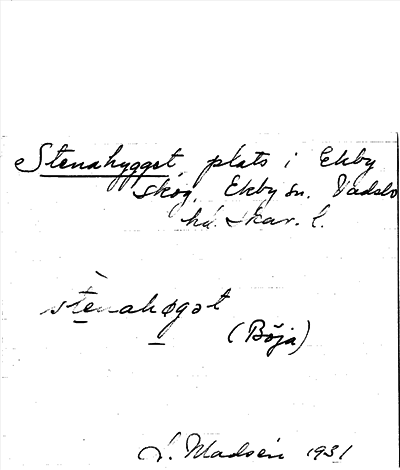 Stenahygget, plats i Ekby
skog, Ekby sn. Vadsbo
hd. Skar. l.
stènahøgət
(Böja)
J. Madsén 1931